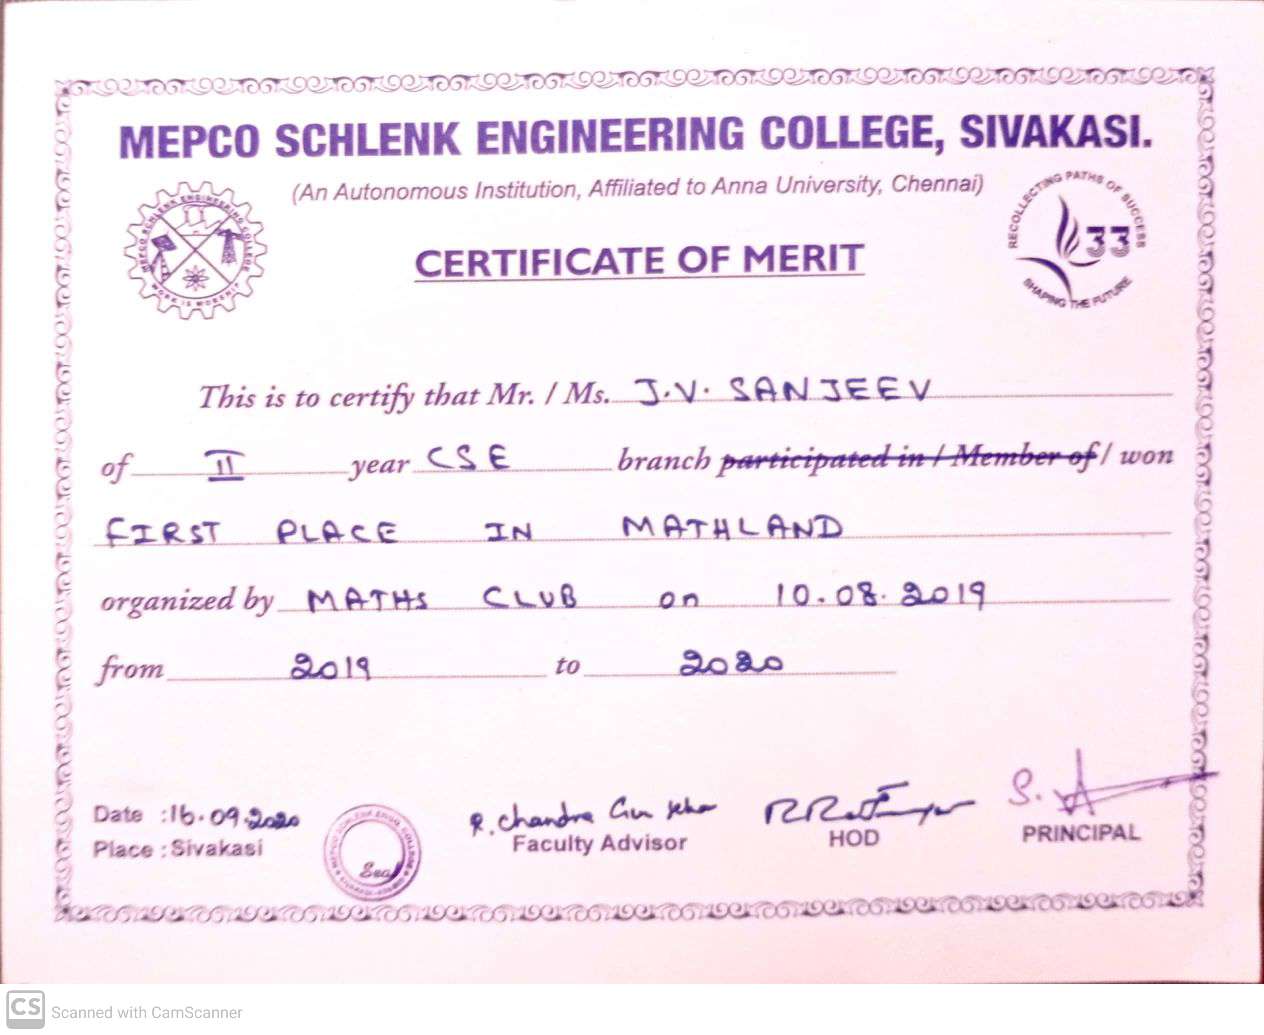 MEPCO SCHLENK ENGINEERING COLLEGE, SIVAKASI.
(An Autonomous Institution, Affiliated to Anna University, Chennai)
MEPCO SCHLENK ENGINEERING COLLEGE
WORK IS WORSHIP
RECOLLECTING PATHS OF SUCCESS
33
SHAPING THE FUTURE
CERTIFICATE OF MERIT
This is to certify that Mr. / Ms. J.V. SANJEEV
of II year CSE branch participated in / Member of / won
FIRST PLACE IN MATHLAND
organized by MATHS CLUB on 10.08.2019
from 2019 to 2020
Date : 16.09.2020
Place : Sivakasi
MEPCO SCHLENK ENGG. COLLEGE
Seal
R. Chandra
Faculty Advisor
HOD
S.
PRINCIPAL
CS Scanned with CamScanner